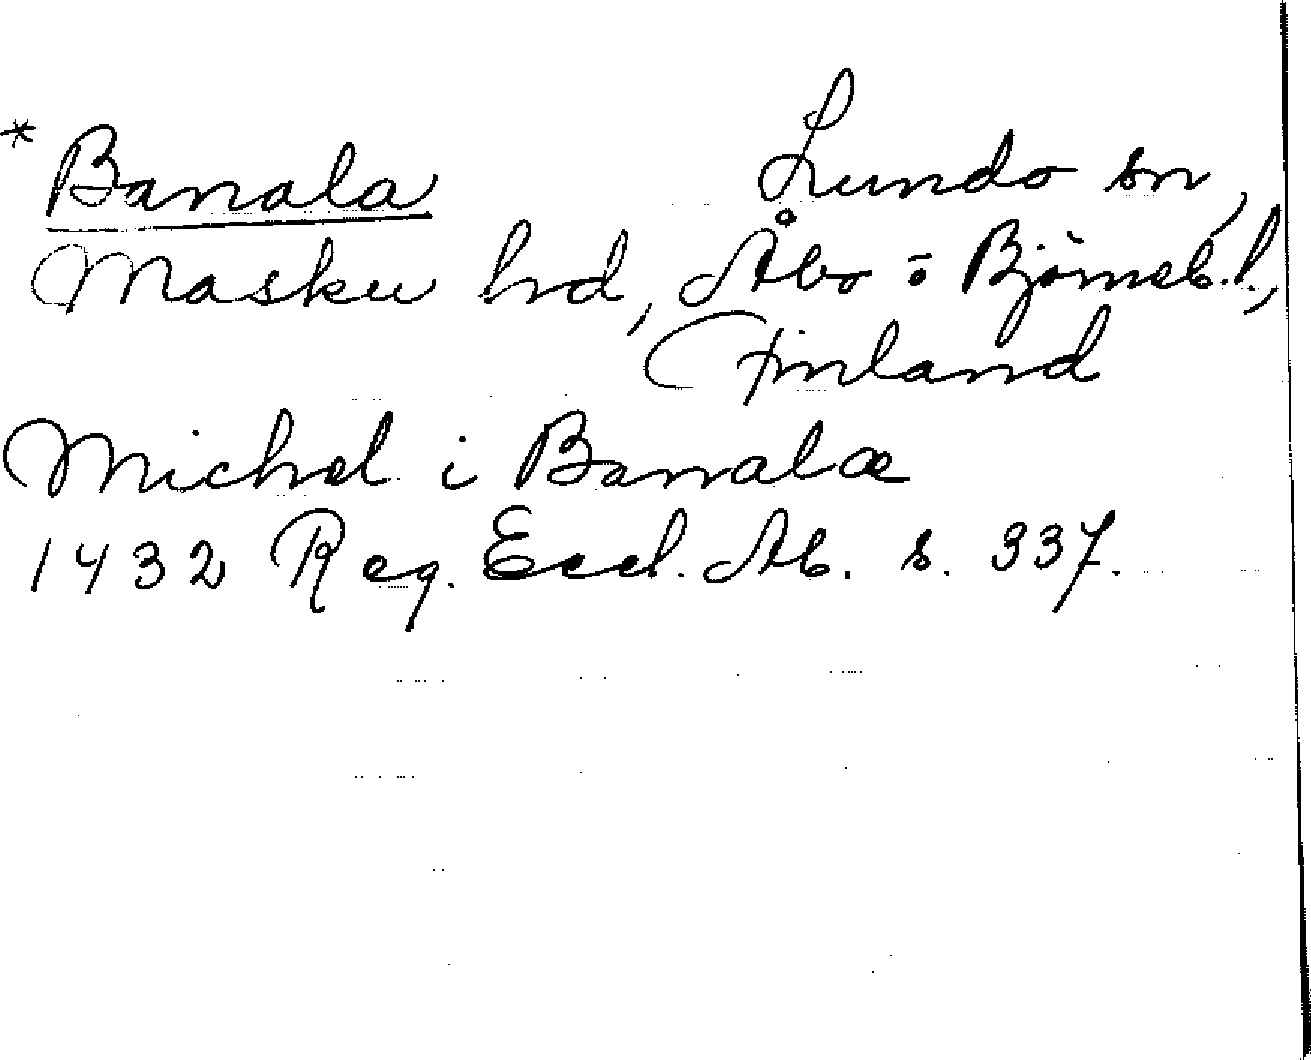 * Banala Lundo sn,
Masku hd, Åbo o Björneb. l.,
Finland
Michel i Banalæ
1432 Reg. Eccl. Ab. s. 337.